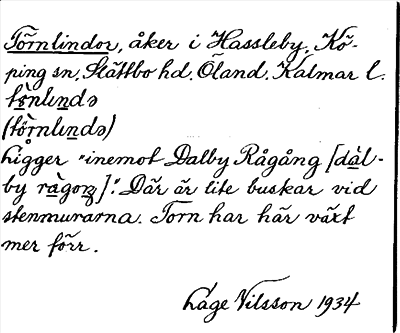 Törnlindor, åker i Hassleby, Kö-
ping sn. Slättbo hd. Öland. Kalmar l.
tö̀nlındə
(tö̀rnlındə)
Ligger "inemot Dalby Rågång [dàl-
by rågoŋ]". Där är lite buskar vid
stenmurarna. Torn har här växt
mer förr.
Låge Nilsson 1934